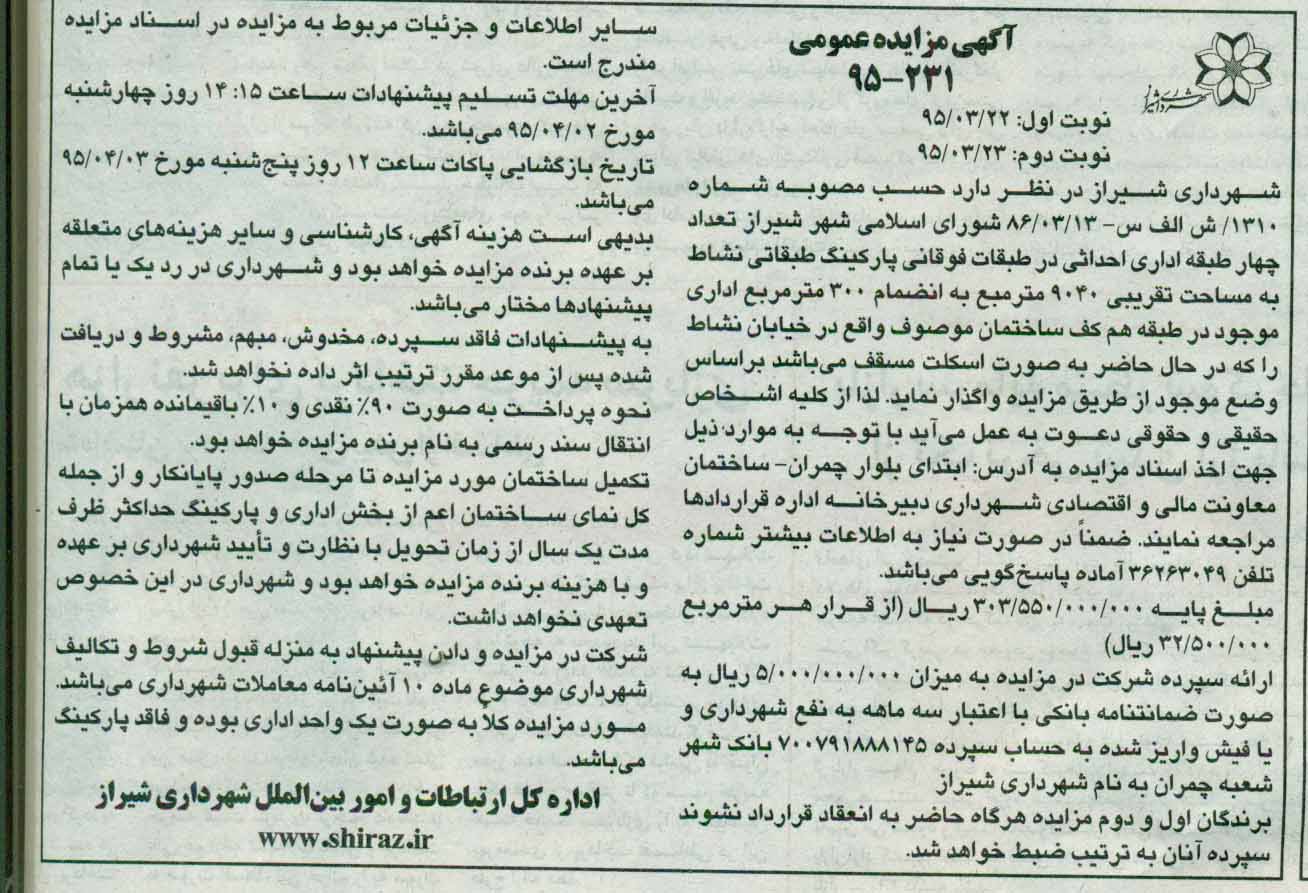 شهرداری شیراز
آگهی مزایده عمومی
۹۵-۲۳۱
نوبت اول: ۹۵/۰۳/۲۲
نوبت دوم: ۹۵/۰۳/۲۳
شهرداری شیراز در نظر دارد حسب مصوبه شماره
۱۳۱۰/ ش الف س- ۸۶/۰۳/۱۳ شورای اسلامی شهر شیراز تعداد
چهار طبقه اداری احداثی در طبقات فوقانی پارکینگ طبقاتی نشاط
به مساحت تقریبی ۹۰۴۰ مترمبع به انضمام ۳۰۰ مترمربع اداری
موجود در طبقه هم کف ساختمان موصوف واقع در خیابان نشاط
را که در حال حاضر به صورت اسکلت مسقف می‌باشد براساس
وضع موجود از طریق مزایده واگذار نماید. لذا از کلیه اشخاص
حقیقی و حقوقی دعوت به عمل می‌آید با توجه به موارد ذیل
جهت اخذ اسناد مزایده به آدرس: ابتدای بلوار چمران- ساختمان
معاونت مالی و اقتصادی شهرداری دبیرخانه اداره قراردادها
مراجعه نمایند. ضمناً در صورت نیاز به اطلاعات بیشتر شماره
تلفن ۳۶۲۶۳۰۴۹ آماده پاسخ‌گویی می‌باشد.
مبلغ پایه ۳۰۳/۵۵۰/۰۰۰/۰۰۰ ریال (از قرار هر مترمربع
۳۲/۵۰۰/۰۰۰ ریال)
ارائه سپرده شرکت در مزایده به میزان ۵/۰۰۰/۰۰۰/۰۰۰ ریال به
صورت ضمانتنامه بانکی با اعتبار سه ماهه به نفع شهرداری و
یا فیش واریز شده به حساب سپرده ۷۰۰۷۹۱۸۸۸۱۴۵ بانک شهر
شعبه چمران به نام شهرداری شیراز
برندگان اول و دوم مزایده هرگاه حاضر به انعقاد قرارداد نشوند
سپرده آنان به ترتیب ضبط خواهد شد.
سایر اطلاعات و جزئیات مربوط به مزایده در اسناد مزایده
مندرج است.
آخرین مهلت تسلیم پیشنهادات ساعت ۱۴:۱۵ روز چهارشنبه
مورخ ۹۵/۰۴/۰۲ می‌باشد.
تاریخ بازگشایی پاکات ساعت ۱۲ روز پنج‌شنبه مورخ ۹۵/۰۴/۰۳
می‌باشد.
بدیهی است هزینه آگهی، کارشناسی و سایر هزینه‌های متعلقه
بر عهده برنده مزایده خواهد بود و شهرداری در رد یک یا تمام
پیشنهادها مختار می‌باشد.
به پیشنهادات فاقد سپرده، مخدوش، مبهم، مشروط و دریافت
شده پس از موعد مقرر ترتیب اثر داده نخواهد شد.
نحوه پرداخت به صورت ۹۰٪ نقدی و ۱۰٪ باقیمانده همزمان با
انتقال سند رسمی به نام برنده مزایده خواهد بود.
تکمیل ساختمان مورد مزایده تا مرحله صدور پایانکار و از جمله
کل نمای ساختمان اعم از بخش اداری و پارکینگ حداکثر ظرف
مدت یک سال از زمان تحویل با نظارت و تأیید شهرداری بر عهده
و با هزینه برنده مزایده خواهد بود و شهرداری در این خصوص
تعهدی نخواهد داشت.
شرکت در مزایده و دادن پیشنهاد به منزله قبول شروط و تکالیف
شهرداری موضوع ماده ۱۰ آئین‌نامه معاملات شهرداری می‌باشد.
مورد مزایده کلاً به صورت یک واحد اداری بوده و فاقد پارکینگ
می‌باشد.
اداره کل ارتباطات و امور بین‌الملل شهرداری شیراز
www.shiraz.ir